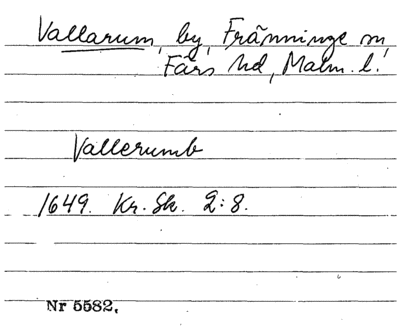 Vallarum, by, Fränninge sn,
Färs hd, Malm. l.
Vallerumb
1649. Kr. Sk. 2:8.
Nr 5582.